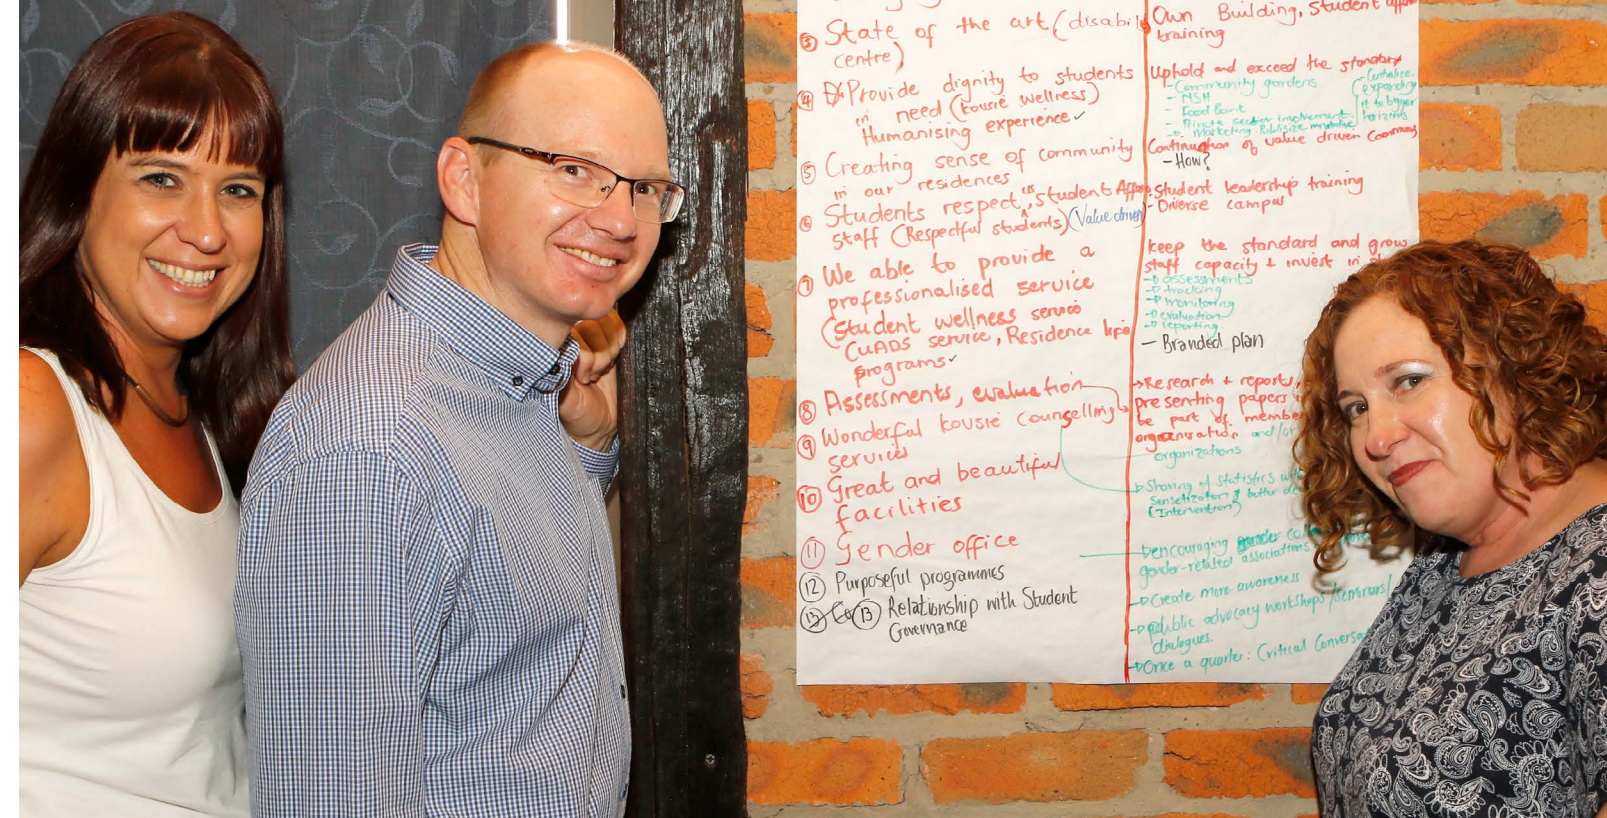 ③ State of the art (disabil
centre)
④ Provide dignity to students
in need (kovsie wellness)
Humanising experience ✓
⑤ Creating sense of community
in our residences
⑥ Students respect, us, Student Affairs
staff (Respectful students) (Value driven)
⑦ We able to provide a
professionalised service
(Student wellness service
CUADS service, Residence life
programs ✓
⑧ Assessments, evaluation
⑨ Wonderful kovsie counselling
services
⑩ Great and beautiful
facilities
⑪ Gender office
⑫ Purposeful programmes
⑬ Relationship with Student
Governance
Own Building, Student affair
training
Uphold and exceed the standard
- Community gardens
- NSH
- Food Bank
- Private sector involvement
- Marketing. Publisize
- Centralise
expanding
it to bigger
horizons
Continuation of value driven Commun
- How?
- Student leadership training
- Diverse campus
keep the standard and grow
staff capacity + invest in
→ assessments
→ tracking
→ monitoring
→ evaluation
→ reporting
- Branded plan
→ Research + reports,
presenting papers
be part of member
organisation and/or
organizations
→ Sharing of statistics with
sensetization &
(Intervention)
→ encouraging gender
gender-related associations
→ Create more awareness
→ public advocacy workshops/seminars/
dialogues.
→ Once a quarter: Critical Conversa